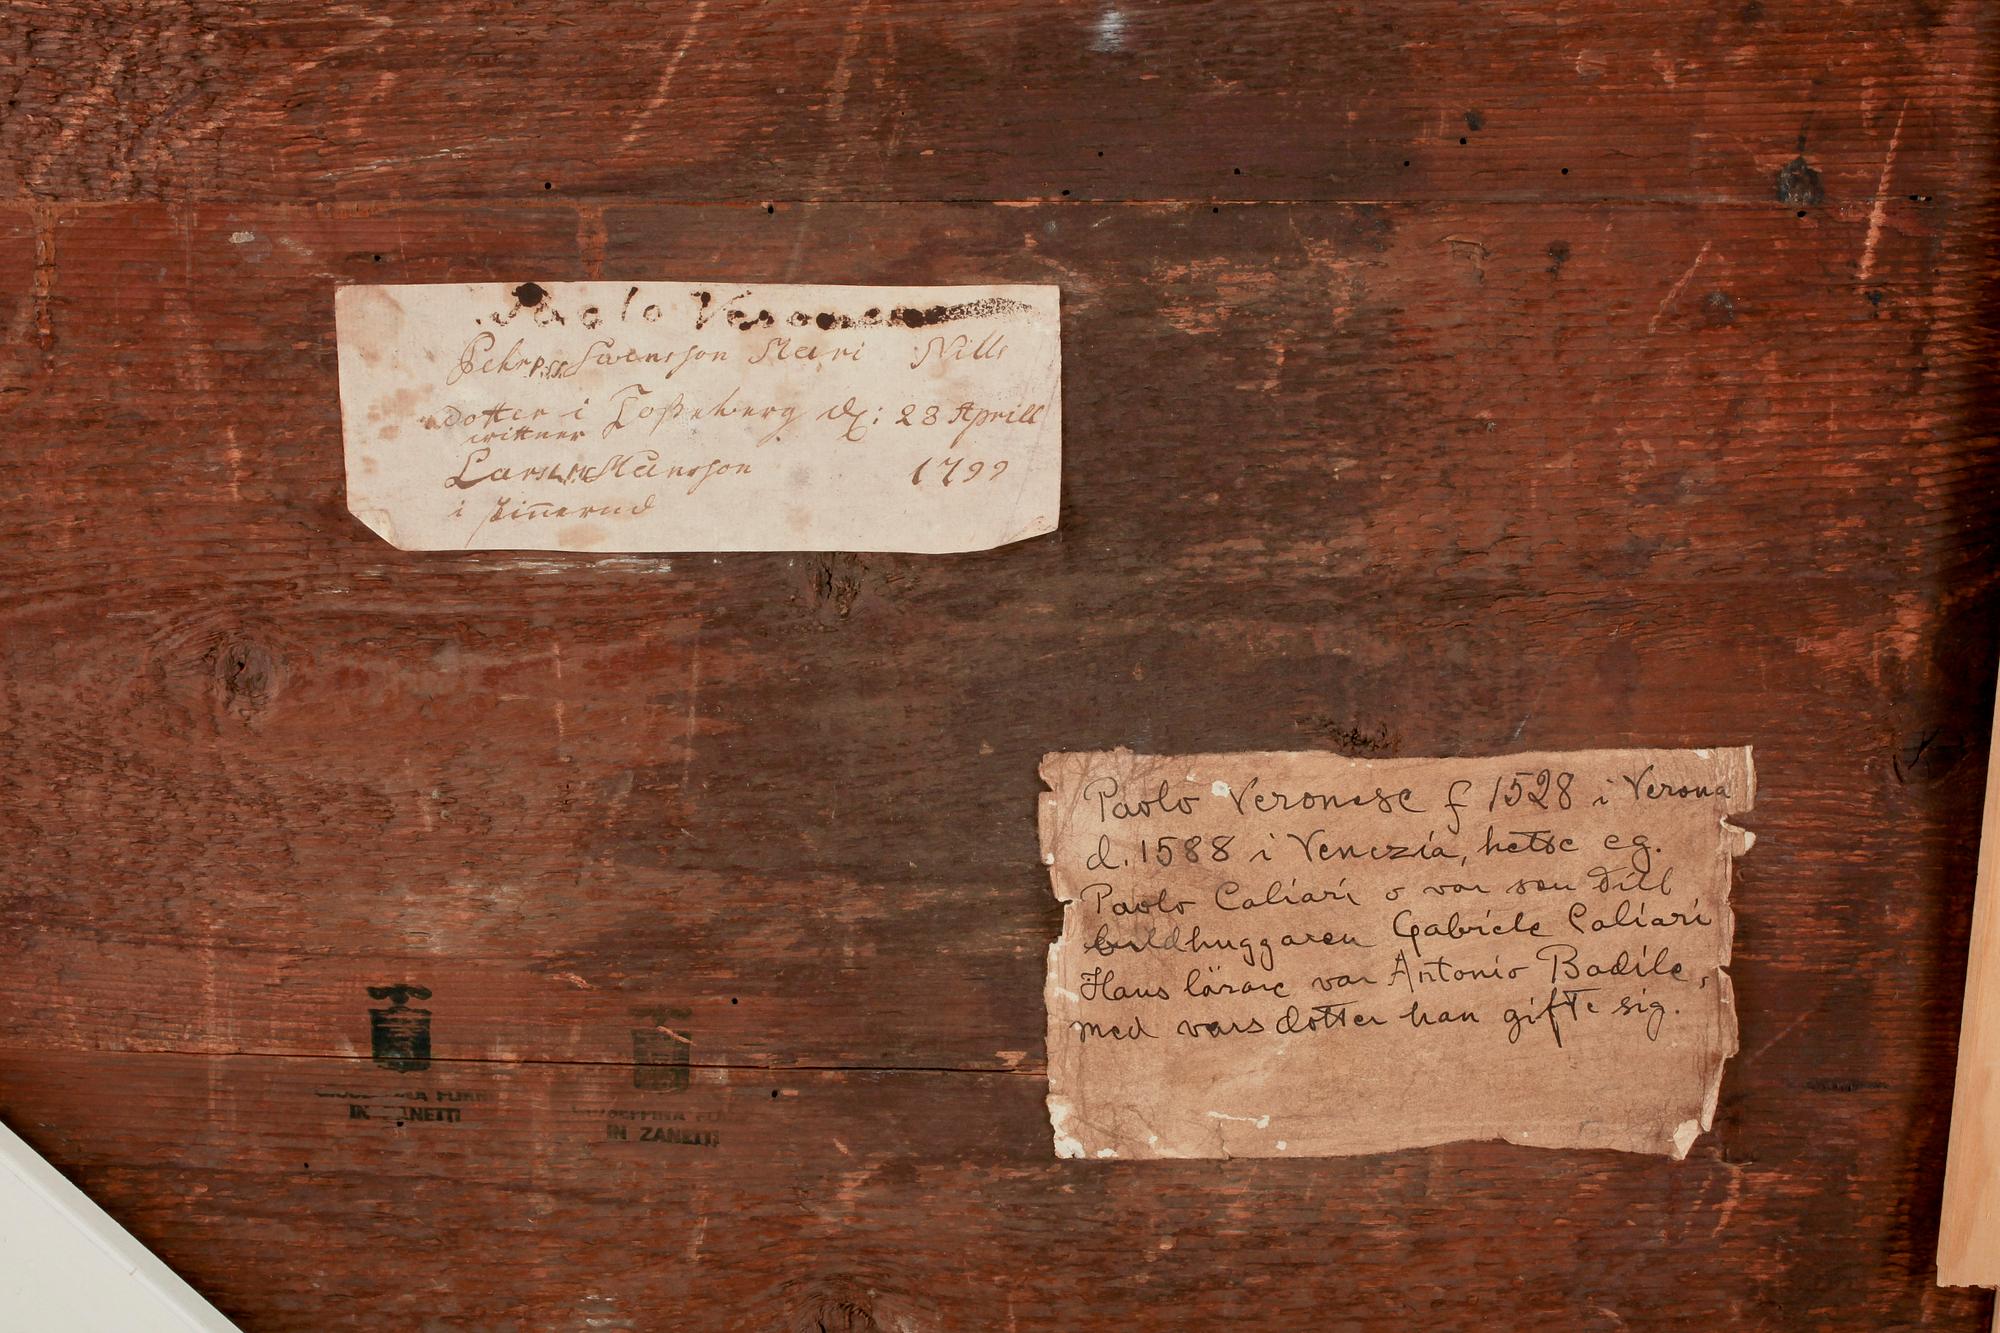 Paolo Veronese
Pehr Svensson Mari Nills
dotter i Toßeberg d: 28 Aprill
wittner
Lars Månsson 1799
i
Paolo Veronese f 1528 i Verona
d. 1588 i Venezia, hette eg.
Paolo Caliari o var son till
bildhuggaren Gabriele Caliari
Hans lärare var Antonio Badile,
med vars dotter han gifte sig.
IN ZANETTI
IN ZANETTI